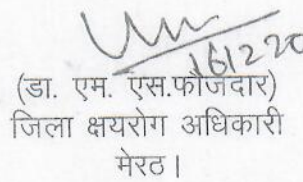 (डा. एम. एस.फौजदार)
जिला क्षयरोग अधिकारी
मेरठ।